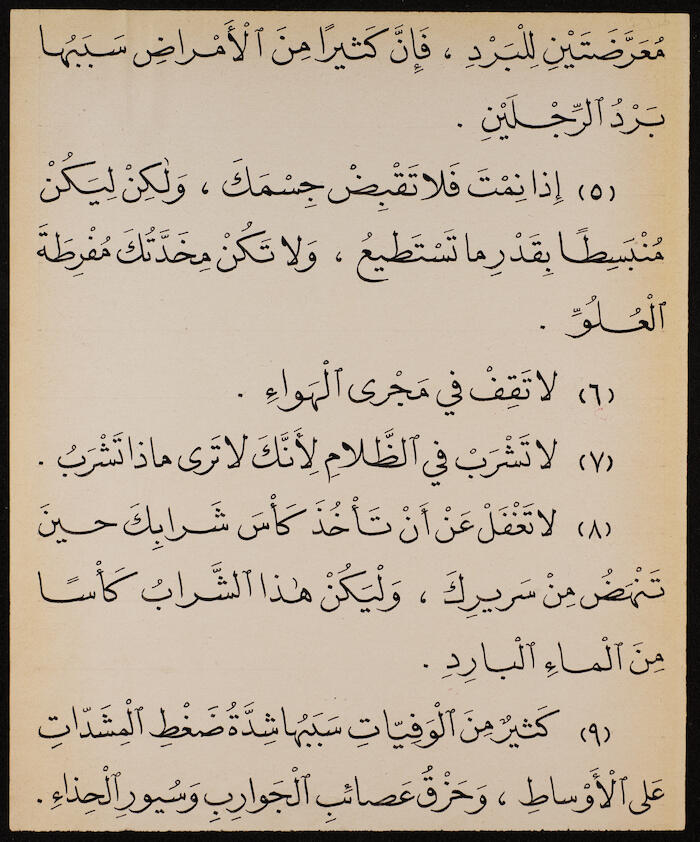 مُعَرَّضَتَيْنِ لِلْبَرْدِ ، فَإِنَّ كَثيرًا مِنَ ٱلْأَمْراضِ سَبَبُها
بَرْدُ ٱلرِّجْلَيْنِ .
(٥) إِذا نِمْتَ فَلا تَقْبِضْ جِسْمَكَ ، وَلٰكِنْ لِيَكُنْ
مُنْبَسِطًا بِقَدْرِ ما تَسْتَطيعُ ، وَلا تَكُنْ مِخَدَّتُكَ مُفْرِطَةَ
ٱلْعُلُوِّ .
(٦) لا تَقِفْ في مَجْرى ٱلْهَواءِ .
(٧) لا تَشْرَبْ في ٱلظَّلامِ لِأَنَّكَ لا تَرى ماذا تَشْرَبُ .
(٨) لا تَغْفَلْ عَنْ أَنْ تَأْخُذَ كَأْسَ شَرابِكَ حينَ
تَنْهَضُ مِنْ سَريرِكَ ، وَلْيَكُنْ هٰذا ٱلشَّرابُ كَأْسًا
مِنَ ٱلْماءِ ٱلْبارِدِ .
(٩) كَثيرٌ مِنَ ٱلْوَفِيّاتِ سَبَبُها شِدَّةُ ضَغْطِ ٱلْمِشَدّاتِ
عَلى ٱلْأَوْساطِ ، وَحَزْقُ عَصائبِ ٱلْجَوارِبِ وَسُيورِ ٱلْحِذاءِ .